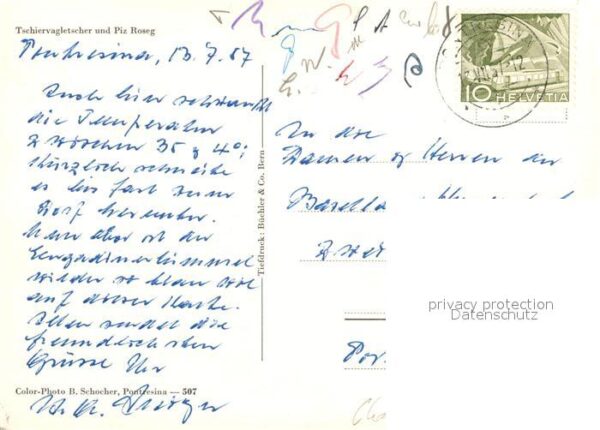 Tschiervagletscher und Piz Roseg
Pontresina, 13.7.57
Auch hier schwankt
die Temperatur
zwischen 35 & 4°;
Kürzlich schneite
es bis fast zum
Dorf herunter.
Nun aber ist der
Engadinerhimmel
wieder so blau wie
auf dieser Karte.
Allen sendet die
freundlichsten
Grüsse Ihr
Color-Photo B. Schocher, Pontresina — 507
Tiefdruck: Büchler & Co. Bern
10 HELVETIA
An die
Damen & Herren der
privacy protection
Datenschutz